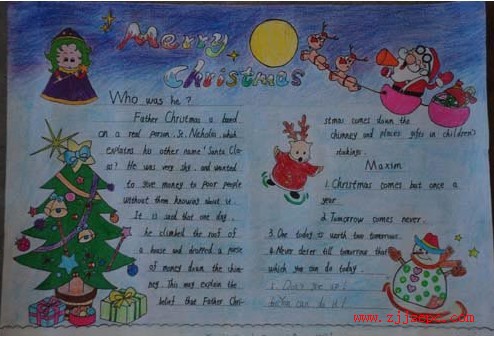 Merry
Christmas
Who was he?
Father Christmas is based
on a real person. St. Nicholas, which
explains his other name "Santa Cla-
us". He was very shy, and wanted
to give money to Poor people
without them knowing about it.
It is said that one day,
he climbed the roof of
a house and dropped a purse
of money down the chim-
ney. This may explain the
belief that Father Chri-
stmas comes down the
chimney and places gifts in children's
stockings.
Maxim
1. Christmas comes but once a
year.
2. Tomorrow comes never.
3. One today is worth two tomorrows.
4. Never defer till tomorrow that
which you can do today.
5. give up!
6. You can do it!
www.zjjzsps.com